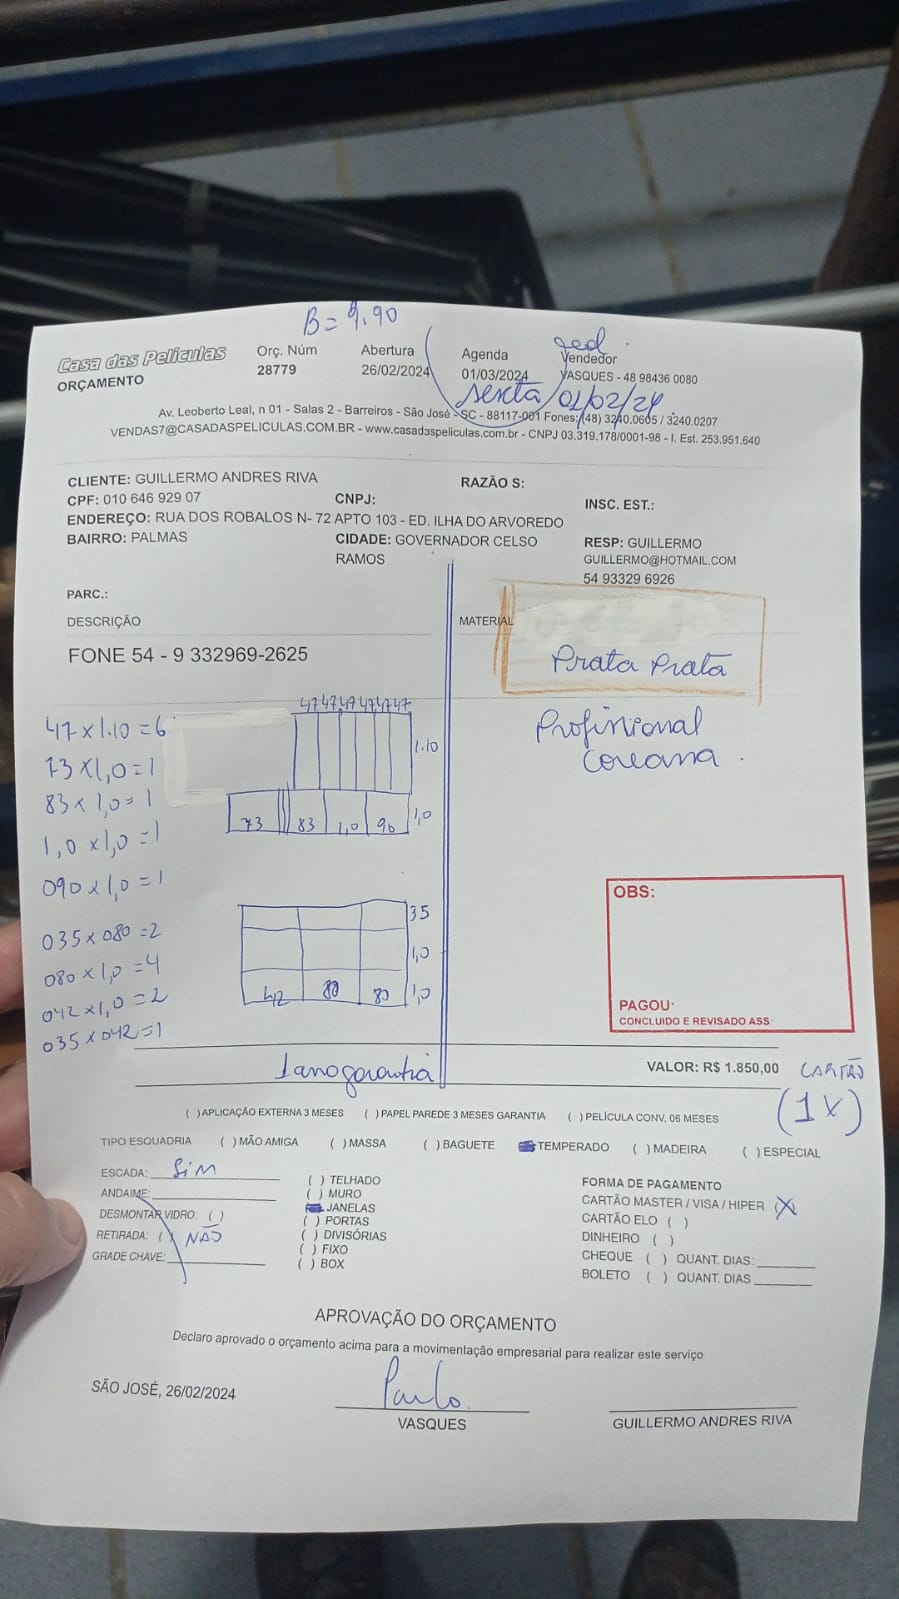 B= 9.90
Casa das Películas
ORÇAMENTO
Orç. Núm
28779
Abertura
26/02/2024
Agenda
01/03/2024
Vendedor
VASQUES - 48 98436 0080
sexta 01/02/24.
Av. Leoberto Leal, n 01 - Salas 2 - Barreiros - São José - SC - 88117-001 Fones: (48) 3240.0605 / 3240.0207
VENDAS7@CASADASPELICULAS.COM.BR - www.casadaspeliculas.com.br - CNPJ 03.319.178/0001-98 - I. Est. 253.951.640
CLIENTE: GUILLERMO ANDRES RIVA
RAZÃO S:
CPF: 010 646 929 07
CNPJ:
INSC. EST.:
ENDEREÇO: RUA DOS ROBALOS N- 72 APTO 103 - ED. ILHA DO ARVOREDO
BAIRRO: PALMAS
CIDADE: GOVERNADOR CELSO
RAMOS
RESP: GUILLERMO
GUILLERMO@HOTMAIL.COM
54 93329 6926
PARC.:
DESCRIÇÃO
MATERIAL
FONE 54 - 9 332969-2625
Prata Prata
Profissional
Coreana.
47 47 47 47 47 47
1.10
73 83 1,0 90
1,0
47 x 1.10 = 6
73 x 1,0 = 1
83 x 1,0 = 1
1,0 x 1,0 = 1
090 x 1,0 = 1
035 x 080 = 2
080 x 1,0 = 4
042 x 1,0 = 2
035 x 042 = 1
35
1,0
42 80 80
1,0
OBS:
PAGOU:
CONCLUIDO E REVISADO ASS:
1 ano garantia
VALOR: R$ 1.850,00
CARTÃO
(1X)
( ) APLICAÇÃO EXTERNA 3 MESES ( ) PAPEL PAREDE 3 MESES GARANTIA ( ) PELÍCULA CONV. 06 MESES
TIPO ESQUADRIA ( ) MÃO AMIGA ( ) MASSA ( ) BAGUETE TEMPERADO ( ) MADEIRA ( ) ESPECIAL
ESCADA: Sim
ANDAIME:
DESMONTAR VIDRO: ( )
RETIRADA: ( ) NÃO
GRADE CHAVE:
( ) TELHADO
( ) MURO
JANELAS
( ) PORTAS
( ) DIVISÓRIAS
( ) FIXO
( ) BOX
FORMA DE PAGAMENTO
CARTÃO MASTER / VISA / HIPER (X)
CARTÃO ELO ( )
DINHEIRO ( )
CHEQUE ( ) QUANT. DIAS:
BOLETO ( ) QUANT. DIAS
APROVAÇÃO DO ORÇAMENTO
Declaro aprovado o orçamento acima para a movimentação empresarial para realizar este serviço
SÃO JOSÉ, 26/02/2024
Paulo.
VASQUES
GUILLERMO ANDRES RIVA